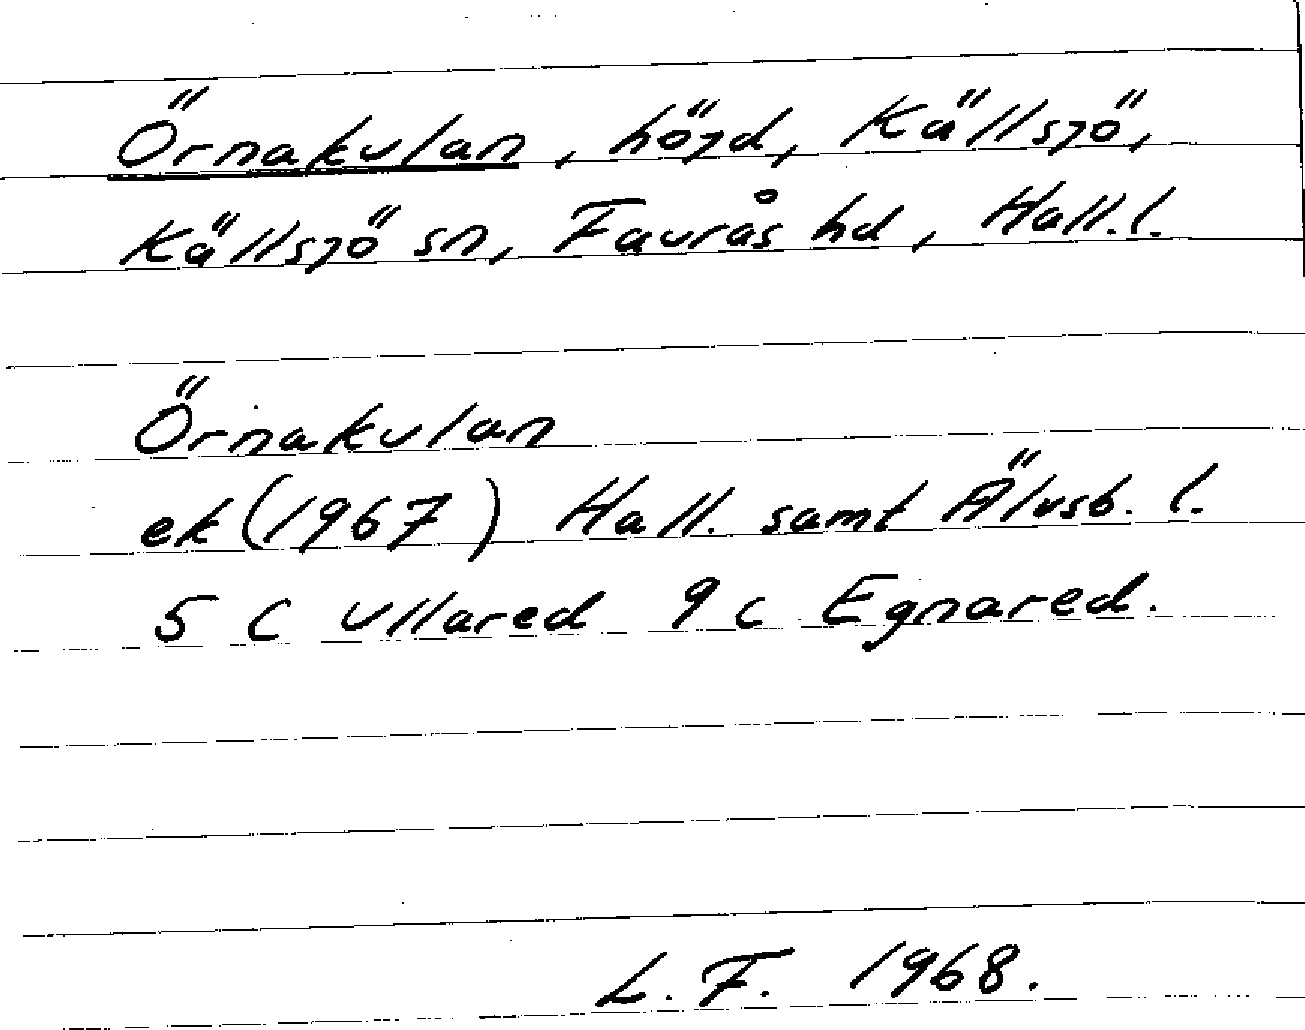 Örnakulan, höjd, Källsjö,
Källsjö sn, Faurås hd, Hall.l.
Örnakulan
ek (1967) Hall. samt Älvsb. l.
5 C Ullared 9 c Egnared.
L. F. 1968.